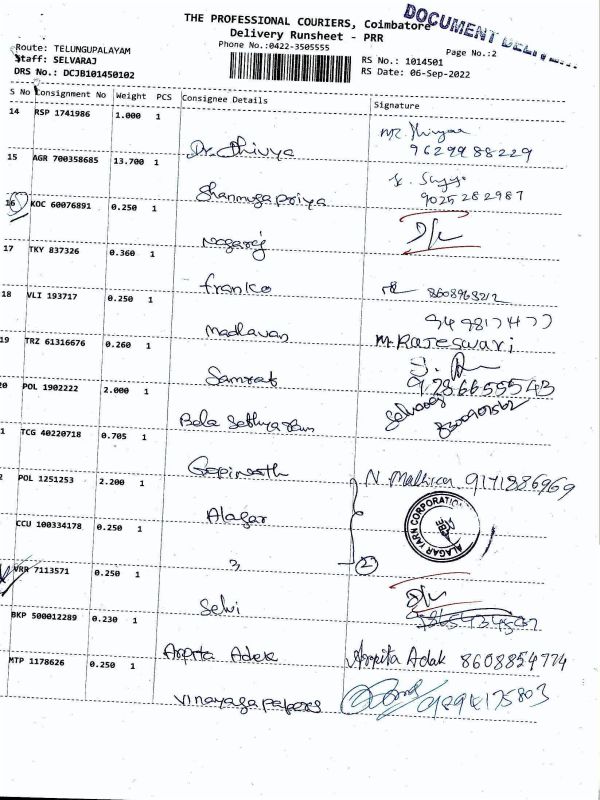 THE PROFESSIONAL COURIERS, Coimbatore
DOCUMENT DELIVERY
Delivery Runsheet - PRR
Phone No.:0422-3505555
Page No.:2
Route: TELUNGUPALAYAM
Staff: SELVARAJ
RS No.: 1014501
DRS No.: DCJB101450102
RS Date: 06-Sep-2022
S No Consignment No Weight PCS Consignee Details Signature
14 RSP 1741986 1.000 1
Dr. Thivya
9629988229
15 AGR 700358685 13.700 1
Shanmugapriya
9025282987
16 KOC 60076891 0.250 1
Nagaraj
D/L
17 TKY 837326 0.360 1
franko
8608968212
18 VLI 193717 0.250 1
Madhavan
M. Rajeswari
19 TRZ 61316676 0.260 1
Samrat
9286655543
20 POL 1902222 2.000 1
Bala Sethuram
Selvaraj
1 TCG 40220718 0.705 1
Gopinath
N. 9171886969
2 POL 1251253 2.200 1
Alagar
ALAGAR YARN CORPORATION
CCU 100334178 0.250 1
2
VRR 7113571 0.250 1
Selvi
D/L
BKP 500012289 0.230 1
Arpita Adak
Arpita Adak 8608854774
MTP 1178626 0.250 1
Vinayaga papers
9894175803